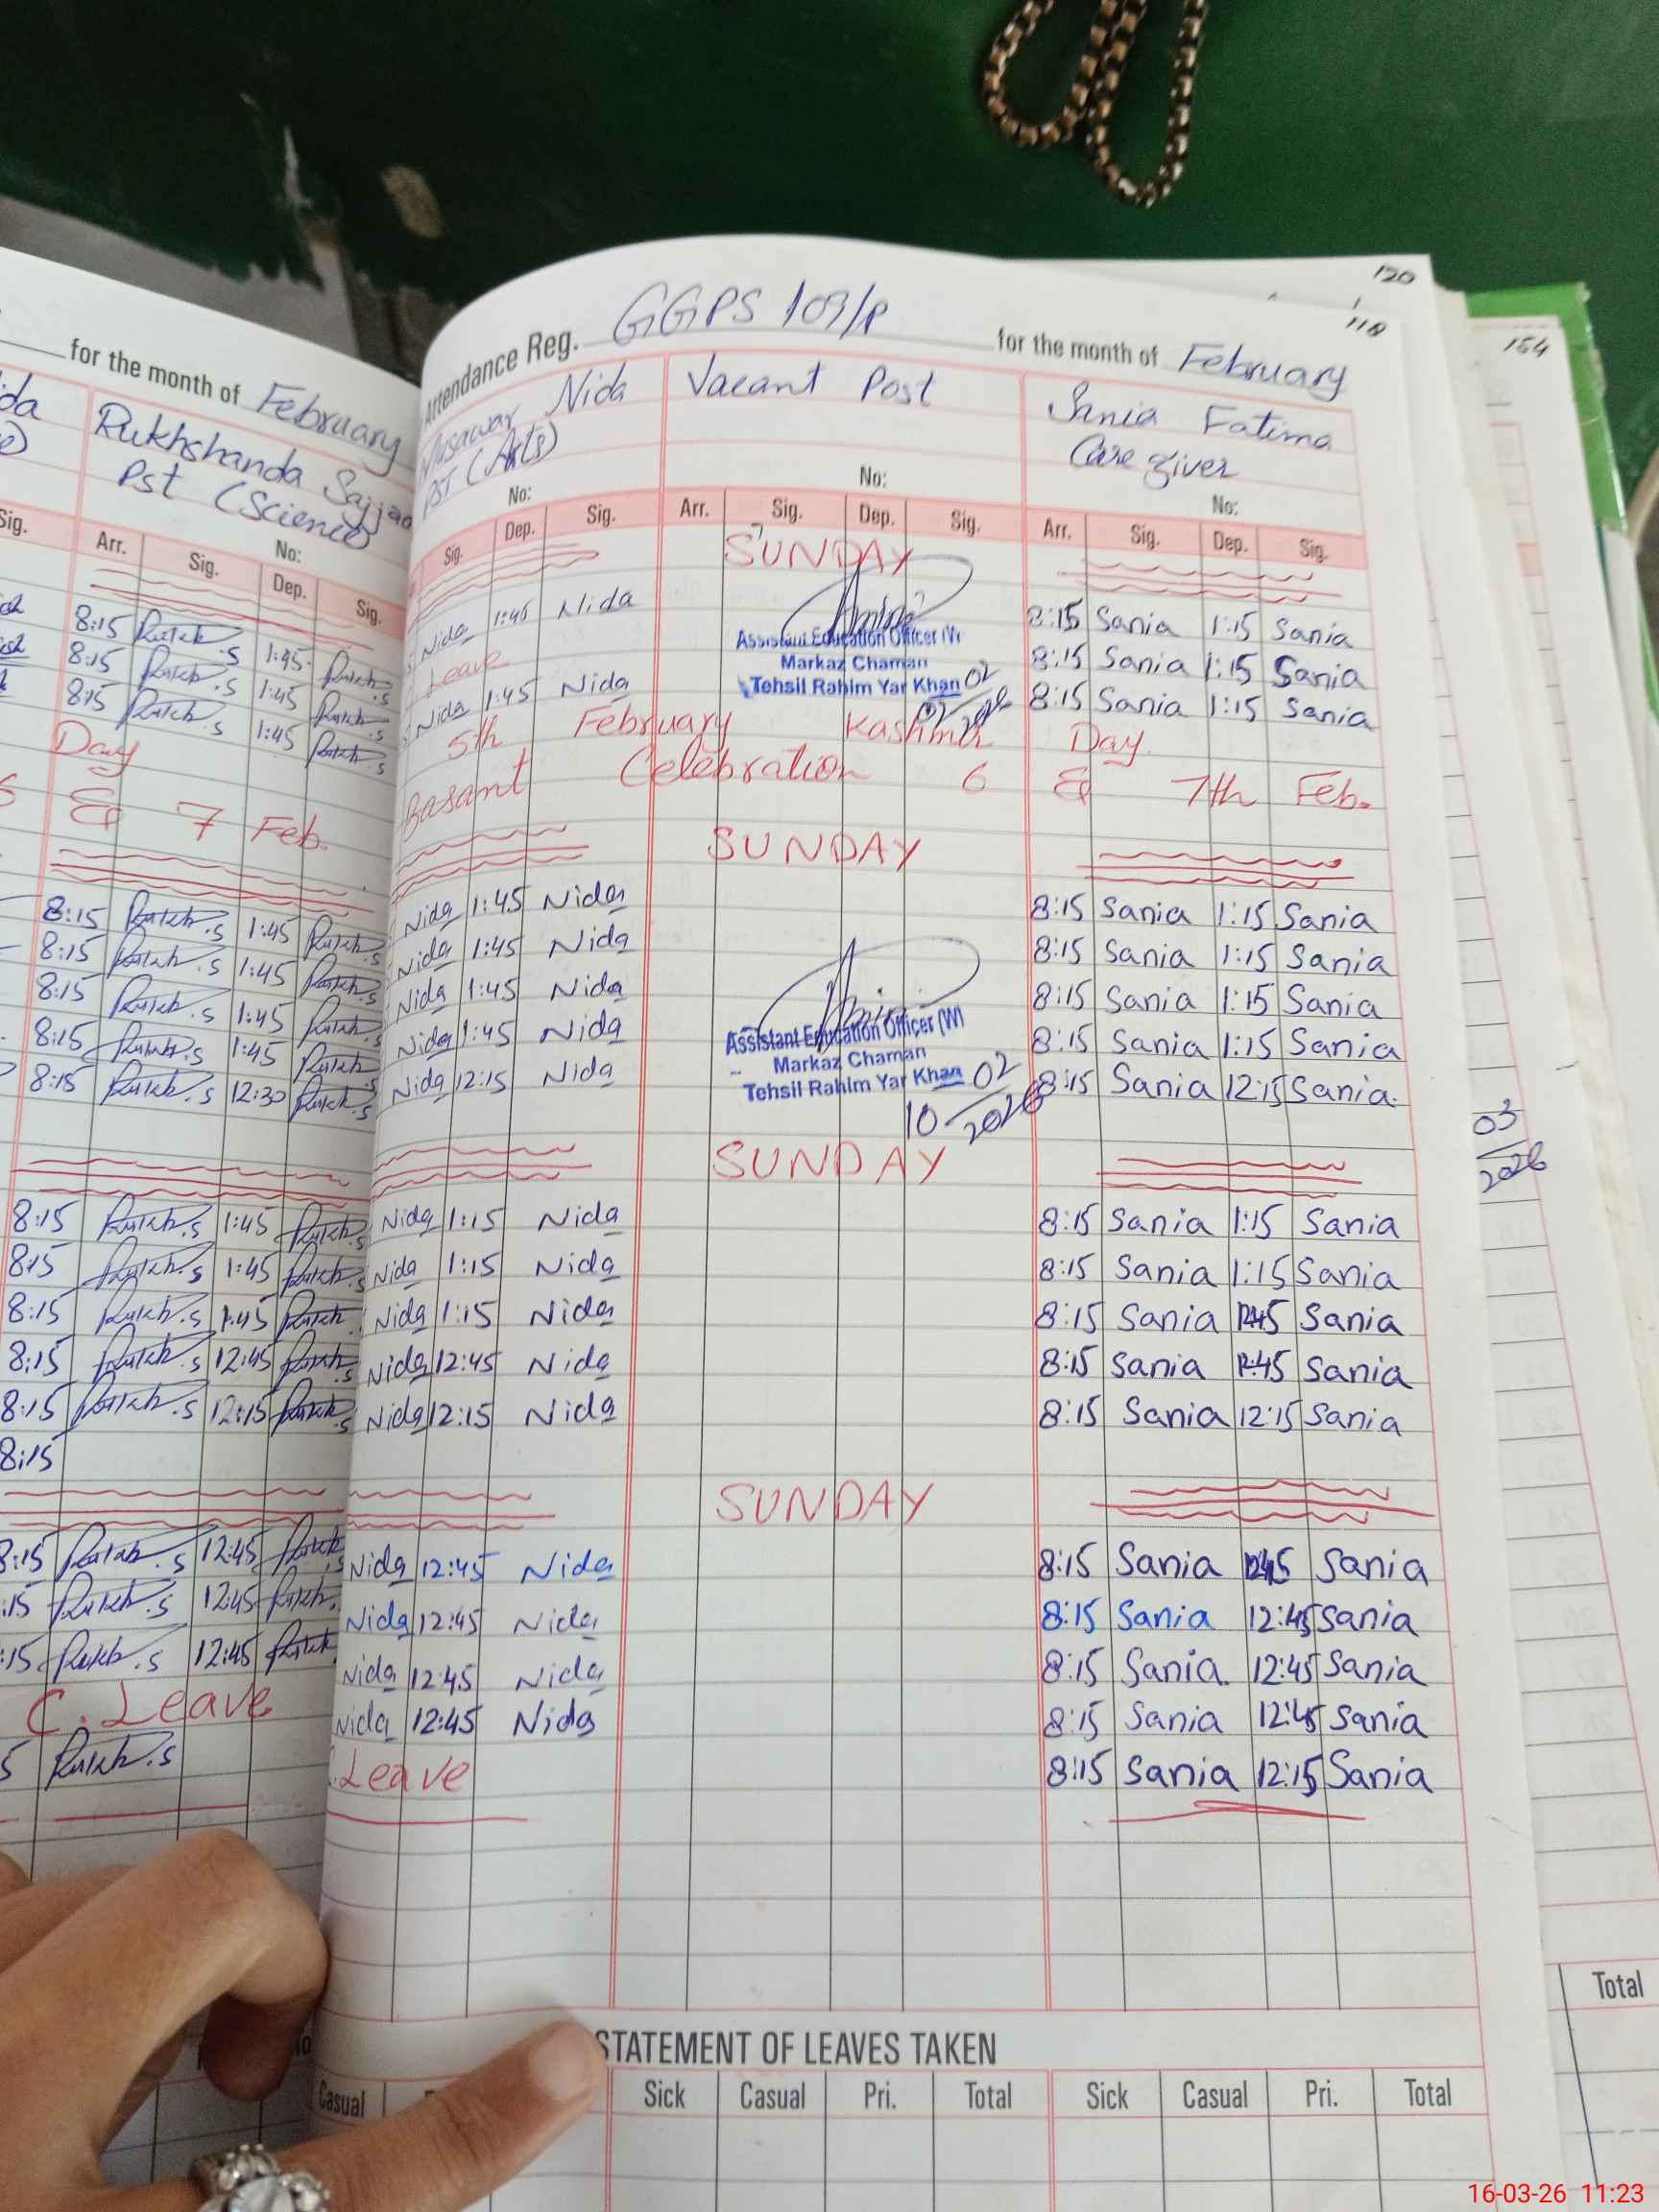 for the month of February
Rukhshanda Sajjad
Pst (Science)
No:
Sig. Arr. Sig. Dep. Sig.
8:15 Rukh.s 1:45 Rukh.s
8:15 Rukh.s 1:45 Rukh.s
8:15 Rukh.s 1:45 Rukh.s
Day
& 7 Feb.
8:15 Rukh.s 1:45 Rukh.s
8:15 Rukh.s 1:45 Rukh.s
8:15 Rukh.s 1:45 Rukh.s
8:15 Rukh.s 1:45 Rukh.s
8:15 Rukh.s 12:30 Rukh.s
8:15 Rukh.s 1:45 Rukh.s
8:15 Rukh.s 1:45 Rukh.s
8:15 Rukh.s 1:45 Rukh
8:15 Rukh.s 12:45 Rukh.s
8:15 Rukh.s 12:15 Rukh.s
8:15
8:15 Rukh.s 12:45 Rukh.s
:15 Rukh.s 12:45 Rukh.
:15 Rukh.s 12:45 Rukh
C. Leave
5 Rukh.s
120
118
164
Attendance Reg. GGPS 109/P for the month of February
Musawar Nida Vacant Post Sania Fatima
PST (Arts) Care giver
No: No: No:
Sig. Dep. Sig. Arr. Sig. Dep. Sig. Arr. Sig. Dep. Sig.
SUNDAY
Nida 1:45 Nida 8:15 Sania 1:15 Sania
Leave 8:15 Sania 1:15 Sania
Nida 1:45 Nida 8:15 Sania 1:15 Sania
Assistant Education Officer (W)
Markaz Chaman
Tehsil Rahim Yar Khan 02
02 2026
5th February Kashmir Day
Basant Celebration 6 & 7th Feb.
SUNDAY
Nida 1:45 Nida 8:15 Sania 1:15 Sania
Nida 1:45 Nida 8:15 Sania 1:15 Sania
Nida 1:45 Nida 8:15 Sania 1:15 Sania
Nida 1:45 Nida 8:15 Sania 1:15 Sania
Nida 12:15 Nida 8:15 Sania 12:15 Sania.
Assistant Education Officer (W)
Markaz Chaman
Tehsil Rahim Yar Khan 02
10 2026
03
2026
SUNDAY
Nida 1:15 Nida 8:15 Sania 1:15 Sania
Nida 1:15 Nida 8:15 Sania 1:15 Sania
Nida 1:15 Nida 8:15 Sania 12:45 Sania
Nida 12:45 Nida 8:15 Sania 12:45 Sania
Nida 12:15 Nida 8:15 Sania 12:15 Sania
SUNDAY
Nida 12:45 Nida 8:15 Sania 12:45 Sania
Nida 12:45 Nida 8:15 Sania 12:45 Sania
Nida 12:45 Nida 8:15 Sania. 12:45 Sania
Nida 12:45 Nida 8:15 Sania 12:45 Sania
Leave 8:15 Sania 12:15 Sania
STATEMENT OF LEAVES TAKEN
Casual Sick Casual Pri. Total Sick Casual Pri. Total
Total
16-03-26 11:23